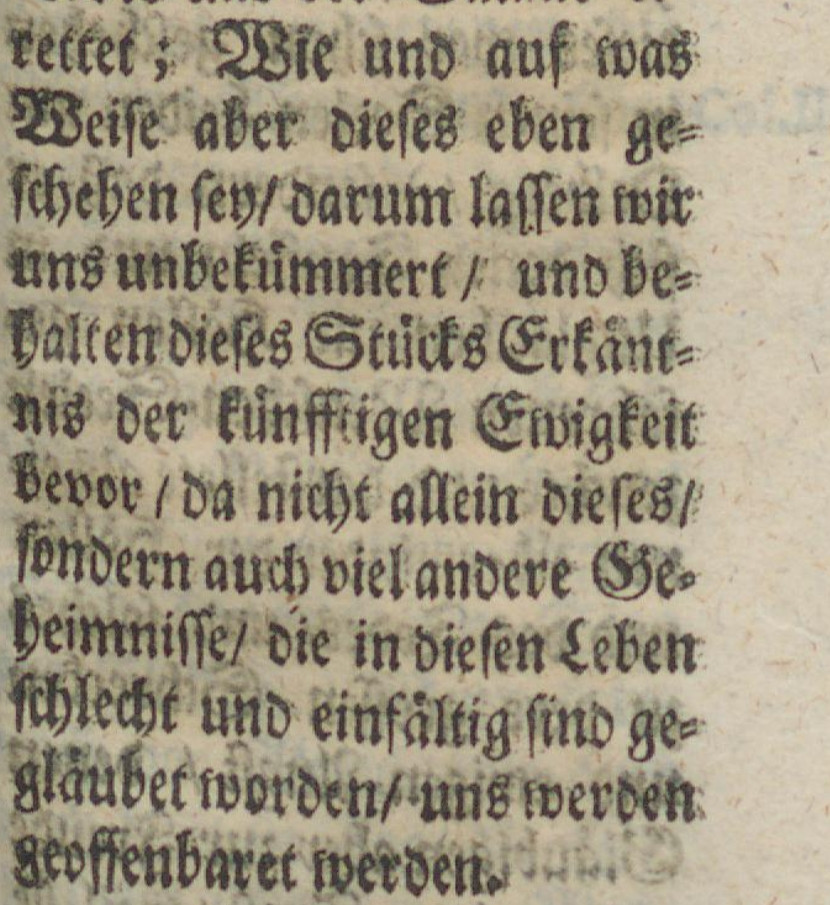 rettet; Wie und auf was
Weiſe aber dieſes eben ge⸗
ſchehen ſey/ darum laſſen wir
uns unbekümmert / und be⸗
halten dieſes Stücks Erkänt⸗
nis der künfftigen Ewigkeit
bevor / da nicht allein dieſes/
ſondern auch viel andere Ge⸗
heimniſſe/ die in dieſen Leben
ſchlecht und einfältig ſind ge⸗
gläubet worden/ uns werden
geoffenbaret werden.